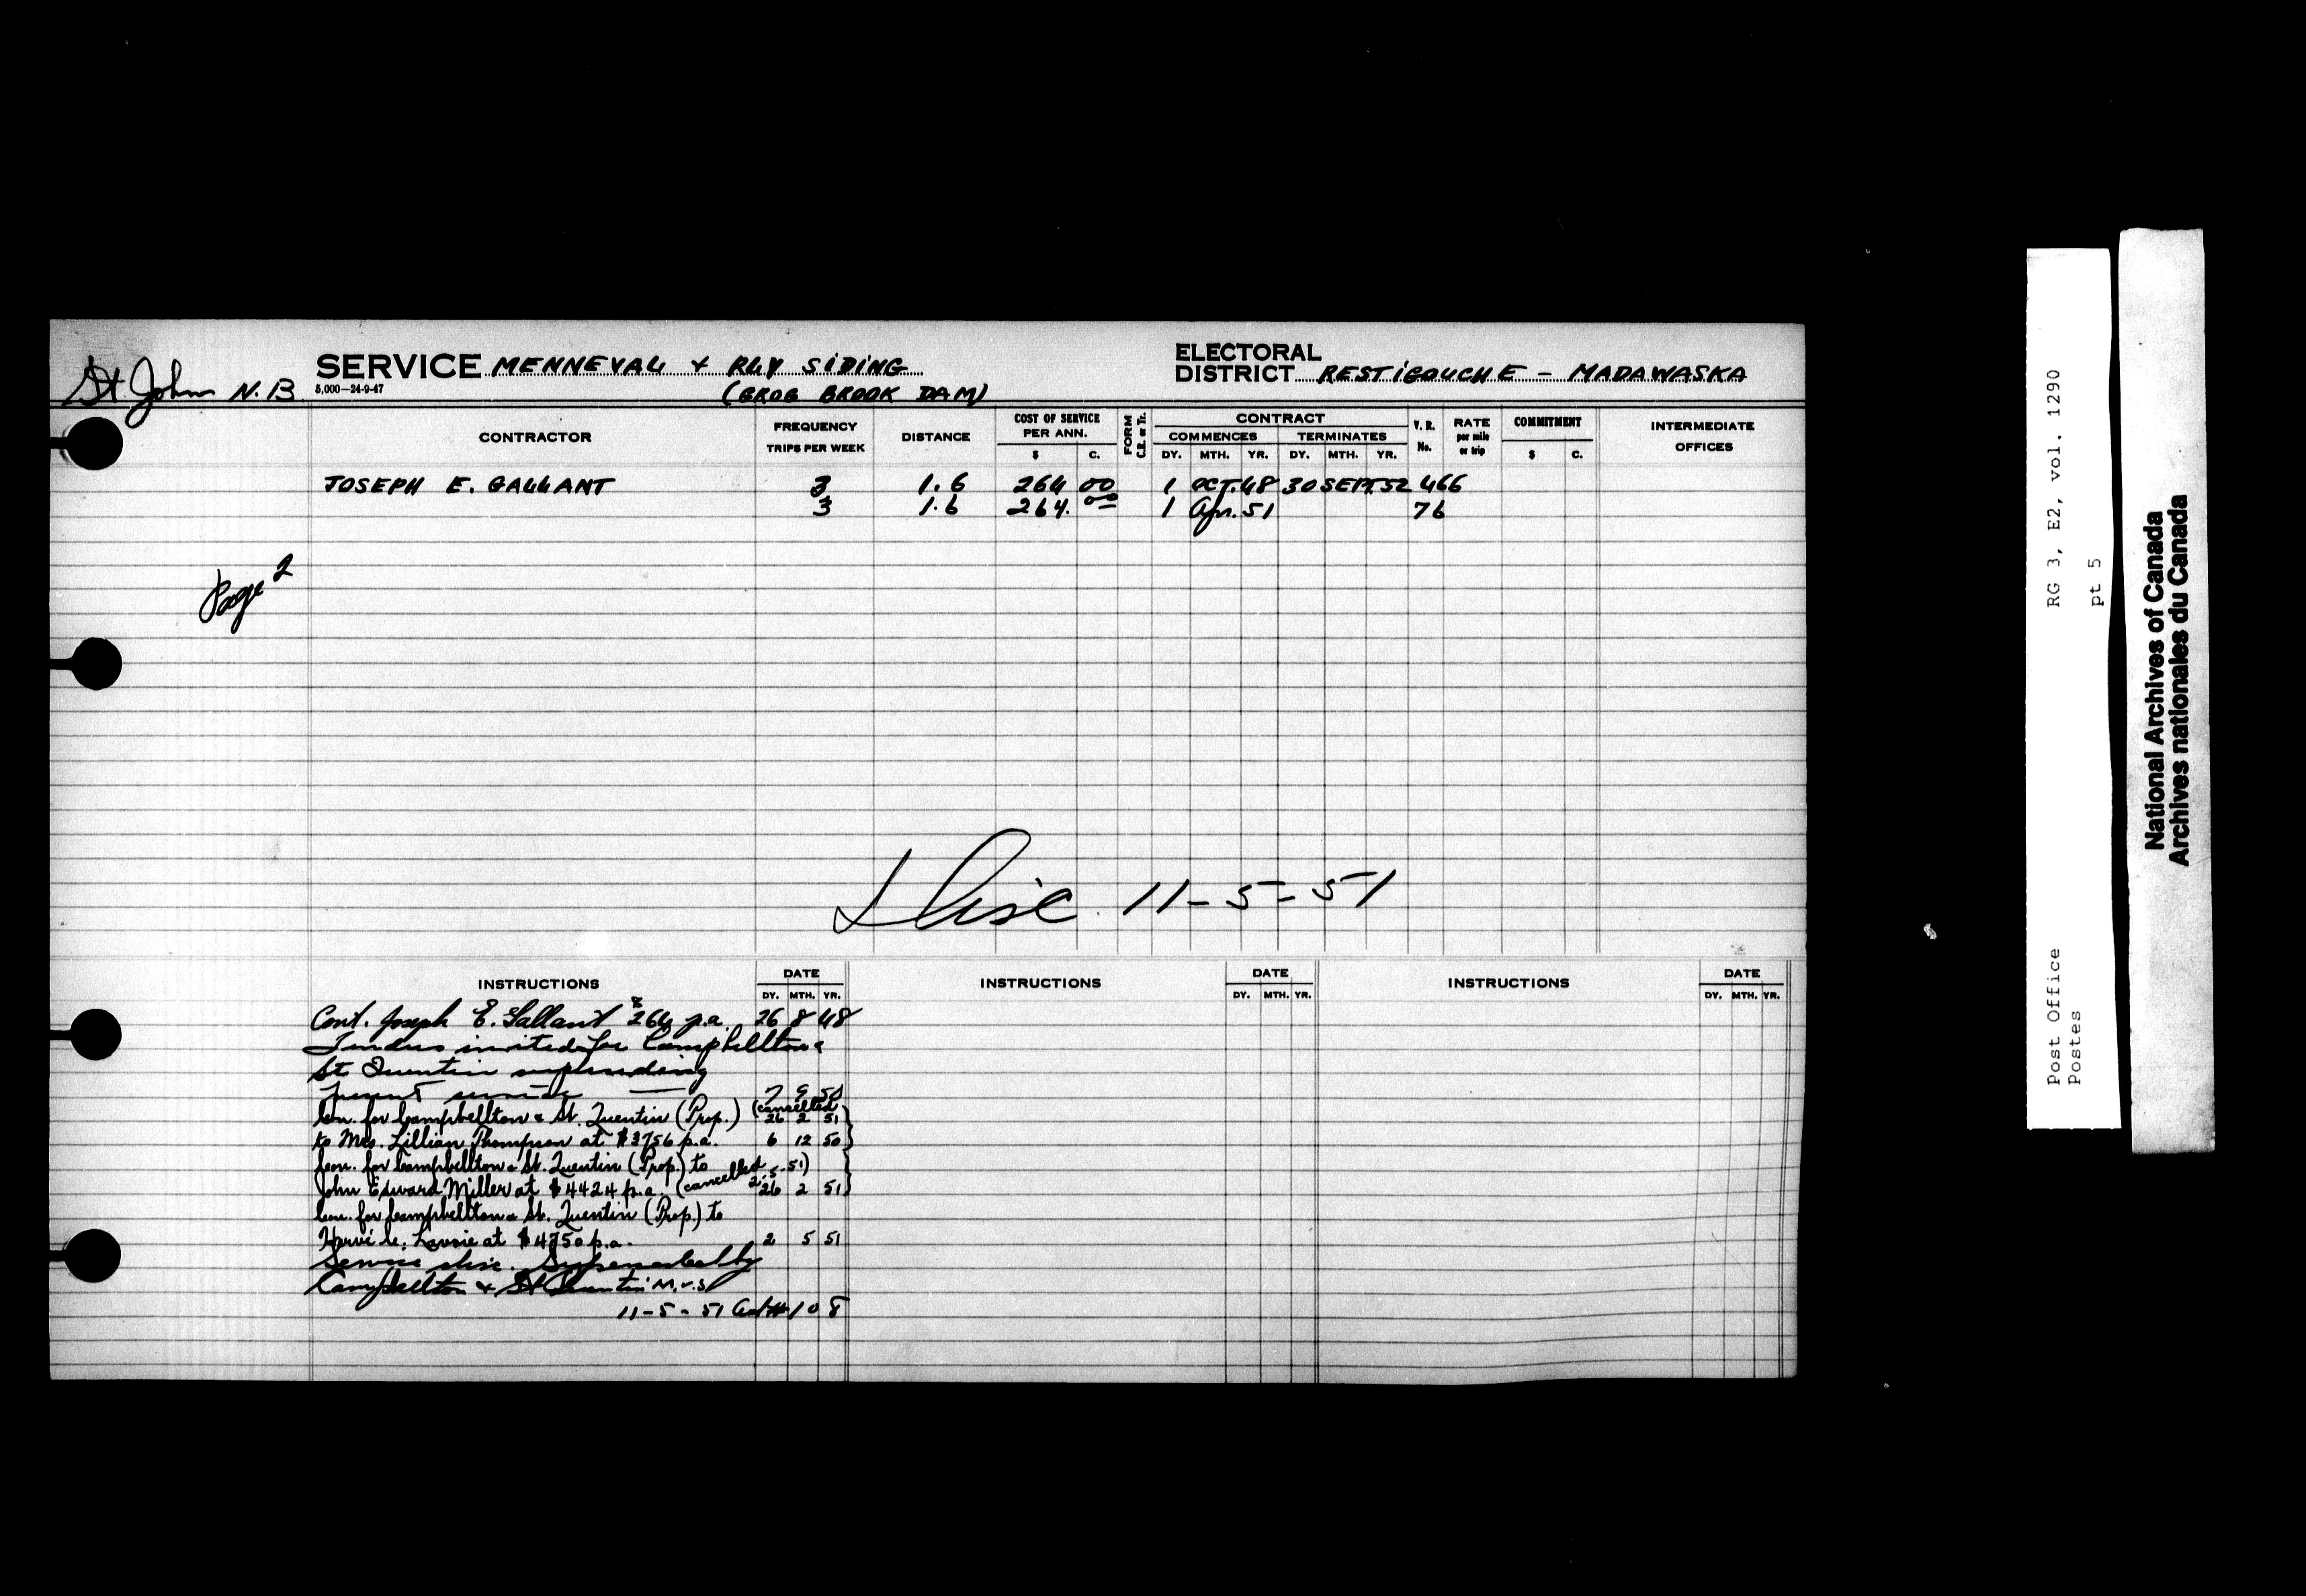 St John N.B.
SERVICE MENNEVAL + RLY SIDING
5,000—24-9-47
(GROG BROOK DAM)
ELECTORAL
DISTRICT RESTIGOUCHE - MADAWASKA
CONTRACTOR
FREQUENCY
TRIPS PER WEEK
DISTANCE
COST OF SERVICE
PER ANN.
$ C.
FORM
C.R. or Tr.
CONTRACT
COMMENCES TERMINATES
DY. MTH. YR. DY. MTH. YR.
V. R.
No.
RATE
per mile
or trip
COMMITMENT
$ C.
INTERMEDIATE
OFFICES
JOSEPH E. GALLANT 3 1.6 264 00 1 OCT. 48 30 SEPT. 52 466
3 1.6 264. 00 1 Apr. 51 76
Page 2
Disc. 11-5-51
INSTRUCTIONS DATE INSTRUCTIONS DATE INSTRUCTIONS DATE
DY. MTH. YR. DY. MTH. YR. DY. MTH. YR.
Cont. Joseph E. Gallant $264 p.a. 26 8 48
Tenders invited for Campbellton &
St Quentin superseding
present service 7 9 50
Con. for Campbellton & St. Quentin (Prop.) (cancelled 26 2 51)
to Mrs. Lillian Thompson at $3756 p.a. 6 12 50
Con. for Campbellton & St. Quentin (Prop.) to
John Edward Miller at $4424 p.a. (cancelled 2.5.51) 26 2 51
Con. for Campbellton & St. Quentin (Prop.) to
Hervé Lavoie at $4750 p.a. 2 5 51
Service disc. Superseded by
Campbellton & St Quentin M.V.S
11-5-51 Aut # 108
RG 3, E2, vol. 1290
pt 5
Post Office
Postes
National Archives of Canada
Archives nationales du Canada